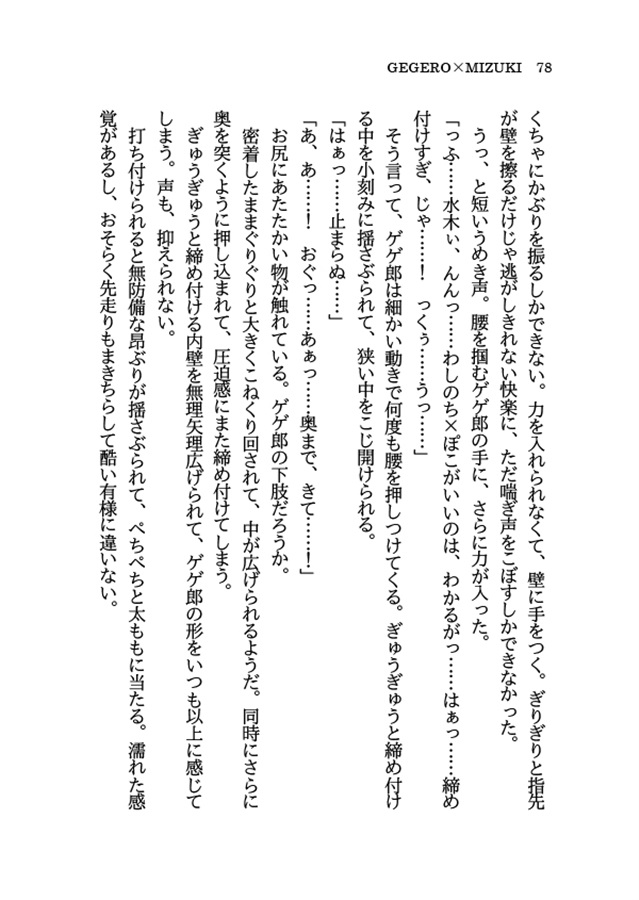 GEGERO×MIZUKI 78
くちゃにかぶりを振るしかできない。力を入れられなくて、壁に手をつく。ぎりぎりと指先
が壁を擦るだけじゃ逃がしきれない快楽に、ただ喘ぎ声をこぼすしかできなかった。
うっ、と短いうめき声。腰を掴むゲゲ郎の手に、さらに力が入った。
「っふ……水木ぃ、んんっ……わしのち×ぽこがいいのは、わかるがっ……はぁっ……締め
付けすぎ、じゃ……！　っくぅ……うっ……」
そう言って、ゲゲ郎は細かい動きで何度も腰を押しつけてくる。ぎゅうぎゅうと締め付け
る中を小刻みに揺さぶられて、狭い中をこじ開けられる。
「はぁっ……止まらぬ……」
「あ、あ……！　おぐっ……あぁっ……奥まで、きて……！」
お尻にあたたかい物が触れている。ゲゲ郎の下肢だろうか。
密着したままぐりぐりと大きくこねくり回されて、中が広げられるようだ。同時にさらに
奥を突くように押し込まれて、圧迫感にまた締め付けてしまう。
ぎゅうぎゅうと締め付ける内壁を無理矢理広げられて、ゲゲ郎の形をいつも以上に感じて
しまう。声も、抑えられない。
打ち付けられると無防備な昂ぶりが揺さぶられて、ぺちぺちと太ももに当たる。濡れた感
覚があるし、おそらく先走りもまきちらして酷い有様に違いない。